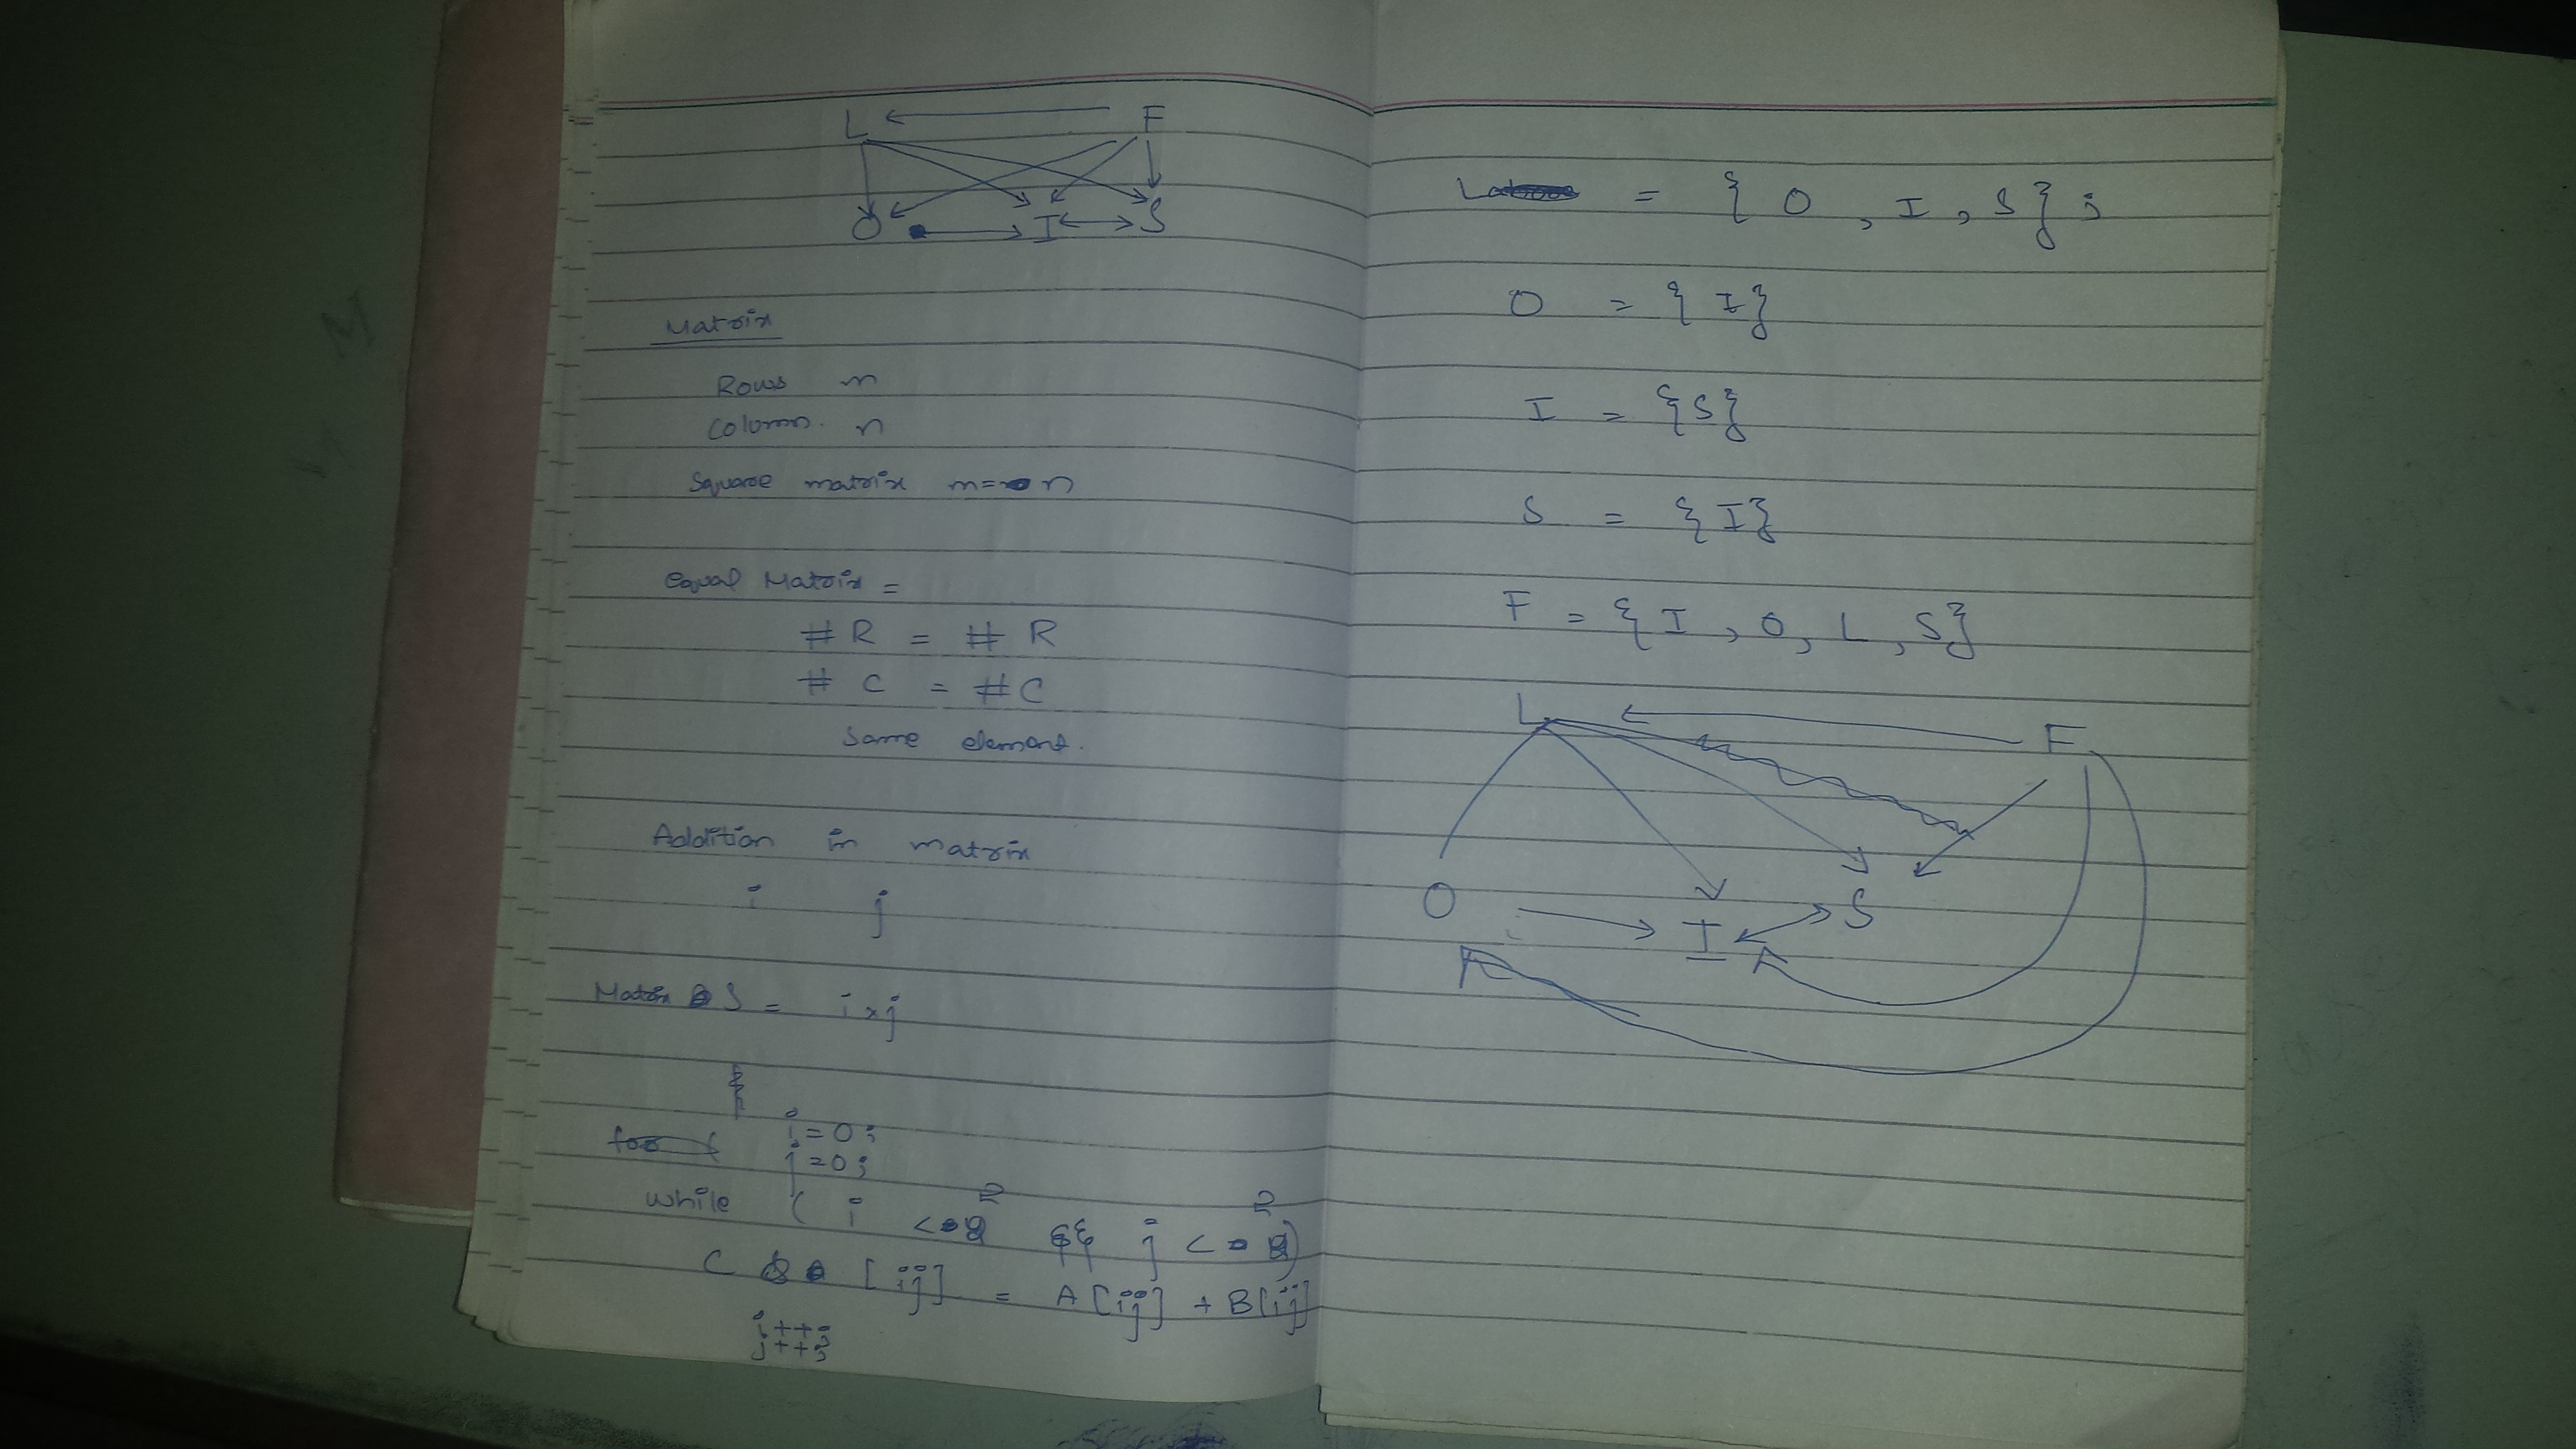 L F
O I S
Matrix
Rows m
Column. n
Square matrix m = n
equal Matrix =
# R = # R
# C = # C
Same element.
Addition in matrix
i j
Matrix S = i x j
i = 0 ;
j = 0 ;
while ( i < 2 && j < 2 )
C [ij] = A [ij] + B[ij]
i++;
j++;
L = { O , I , S } ;
O = { I }
I = { S }
S = { I }
F = { I , O , L , S }
L F
O I S